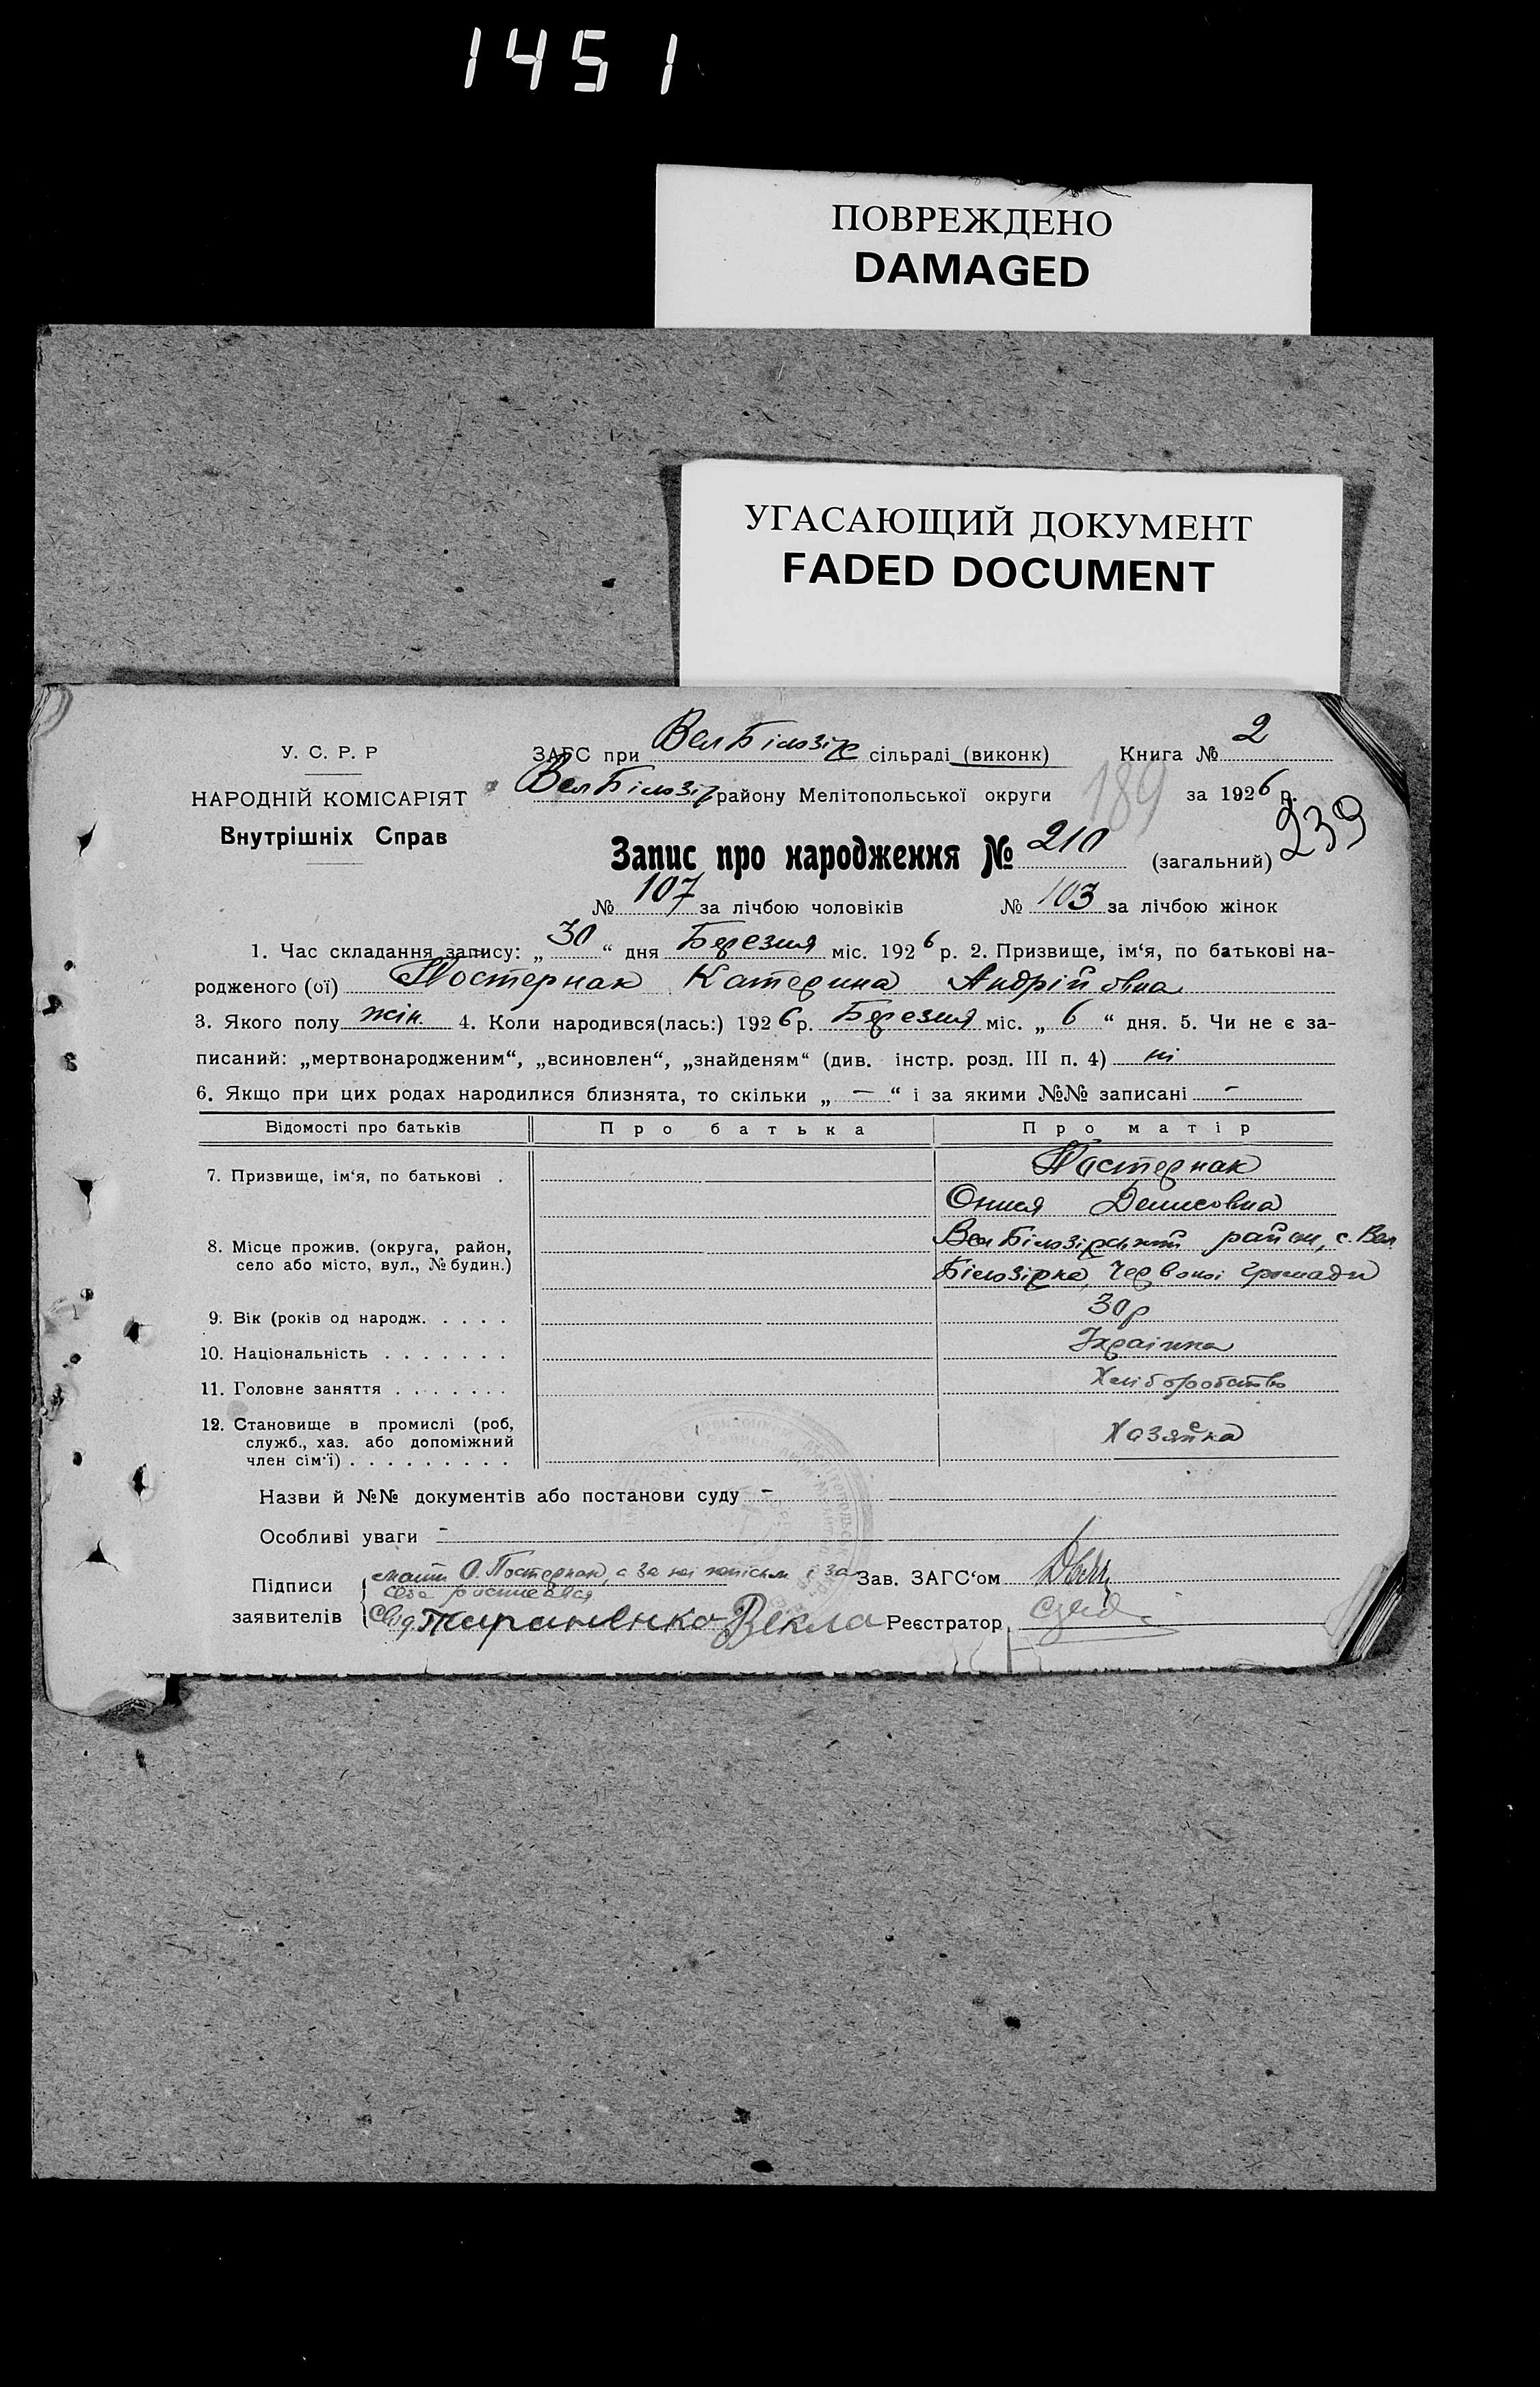 1451
ПОВРЕЖДЕНО
DAMAGED
УГАСАЮЩИЙ ДОКУМЕНТ
FADED DOCUMENT
У. С. Р. Р
НАРОДНІЙ КОМІСАРІЯТ
Внутрішніх Справ
ЗАГС при Вел Білозір сільраді (виконк) Книга № 2
Вел Білозір району Мелітопольської округи 189 за 1926 р.
239
Запис про народження № 210 (загальний)
№ 107 за лічбою чоловіків № 103 за лічбою жінок
1. Час складання запису: „30“ дня Березня міс. 1926 р. 2. Призвище, ім‘я, по батькові на-
родженого (ої) Постернак Катерина Андрійовна
3. Якого полу жін. 4. Коли народився(лась:) 1926 р. Березня міс. „6“ дня. 5. Чи не є за-
писаний: „мертвонародженим“, „всиновлен“, „знайденям“ (див. інстр. розд. III п. 4) ні
6. Якщо при цих родах народилися близнята, то скільки „ — “ і за якими №№ записані -
Відомості про батьків Про батька Про матір
7. Призвище, ім‘я, по батькові . Постернак
Денисовна
8. Місце прожив. (округа, район, Вел Білозірський район, с. Вел
село або місто, вул., № будин.) Білозірка, Червоної Громади
9. Вік (років од народж. . . . . 30 р
10. Національність . . . . . . . Украінка
11. Головне заняття . . . . . . . Хліборобство
12. Становище в промислі (роб, Хазяйка
служб., хаз. або допоміжний
член сім‘ї) . . . . . . . . .
Назви й №№ документів або постанови суду -
Особливі уваги -
Підписи О. Постернак, а за неі і за Зав. ЗАГС‘ом
себе
заявителів Тараненко Векла Реєстратор